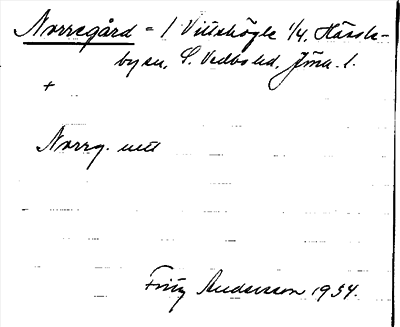 Norregård = 1 Vittskögle 1/4, Hässle-
bysn, S. Vedbo hd, Jönk. l.
+
Norrg. utt
Fritz Andersson 1934.